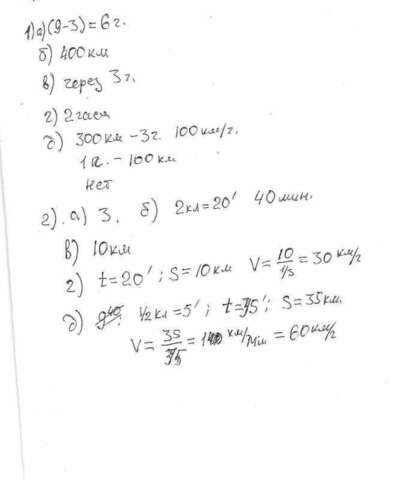 1) а) (9-3) = 6 г.
б) 400 км
в) через 3 г.
г) 2 часа
д) 300 км – 3г. 100 км/г.
1 г. – 100 км
нет
2). а) 3. б) 2 кл = 20' 40 мин.
в) 10 км
г) t = 20' ; S = 10 км V = 10/1/3 = 30 км/г
д) 1/2 кл = 5' ; t = 35' ; S = 35 км.
V = 35/35 = 1 км/мін = 60 км/г